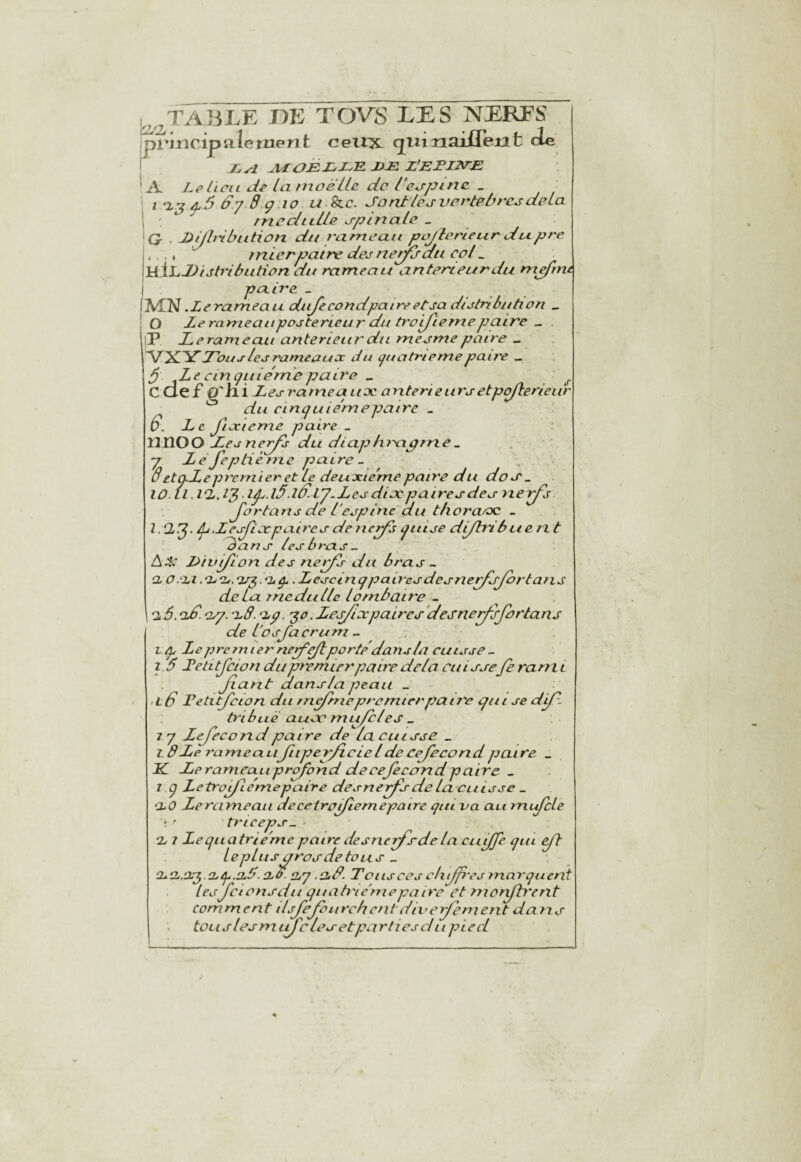 22
TABLE DE TOVS LES NERFS
principalement ceux qui naissent de
LA MOELLE DE L'EPINE
A Le lieu de la moëlle de l'espine _
1 2 3 4 5 6 7 8 9 10 11 &c. Sont les vertebres de la
medulle spinale _
G . Distribution du rameau posterieur du pre
mier paire des nerfs du col _
HIL Distribution du rameau anterieur du mesme
paire _
MN . Le rameau du second paire et sa distribution _
O Le rameau posterieur du troisieme paire _
P Le rameau anterieur du mesme paire _
VXY Tous les rameaux du quatrieme paire _
5 Le cinquième paire _
C def g hi Les rameaux anterieurs et posterieur
du cinquième paire _
6. Le sixieme paire _
nnOO Les nerfs du diaphragme _
7 Le septième paire _
8 et 9 Le premier et le deuxième paire du dos _
10. 11. 12, 13. 14. 15. 16. 17. Les dix paires des nerfs
sortans de l'espine du thorax _
1. 2 3. 4. Les six paires de nerfs qui se distribuent
dans les bras _
Δ &c Division des nerfs du bras _
20. 21. 22. 23. 24. Les cinq paires des nerfs sortans
de la medulle lombaire _
25. 26. 27. 28. 29. 30. Les six paires des nerfs sortans
de l'os sacrum _
14 Le premier nerf est porté dans la cuisse _
15 Petit scion du premier paire de la cuisse se rami
fiant dans la peau _
16 Petit scion du mesme premier paire qui se dis-
tribuë aux muscles _
17 Le second paire de la cuisse _
18 Le rameau superficiel de ce second paire _
K Le rameau profond de ce second paire _
19 Le troisième paire des nerfs de la cuisse _
20 Le rameau de ce troisieme paire qui va au muscle
triceps _
21 Le quatrième paire des nerfs de la cuisse qui est
le plus gros de tous _
22, 23. 24. 25. 26. 27. 28. Tous ces chiffres marquent
les scions du quatrième paire et monstrent
comment ils se fourchent diversement dans
tous les muscles et parties du pied